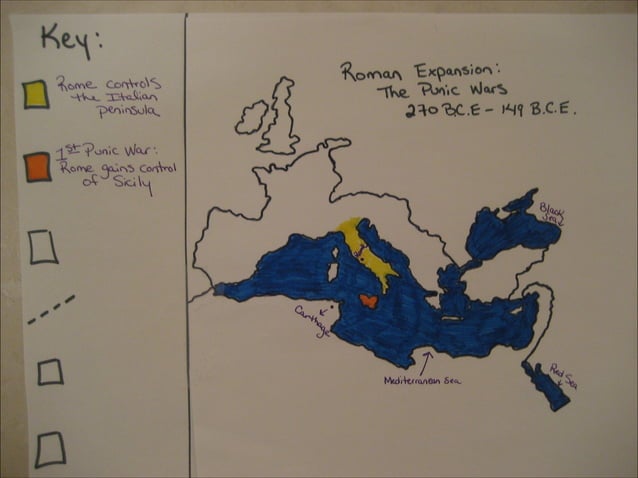 Key:
Rome controls
the Italian
peninsula
1st Punic War:
Rome gains control
of Sicily
Roman Expansion:
The Punic Wars
270 B.C.E - 149 B.C.E.
Black
Sea
Carthage
Mediterranean Sea
Red Sea